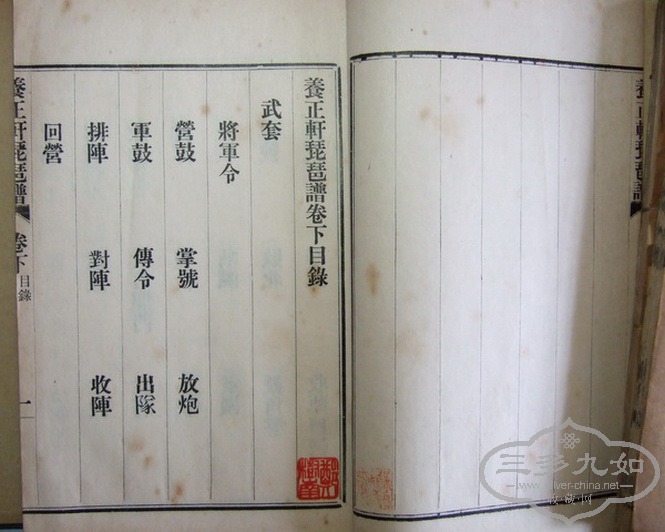 養正軒琵琶譜
養正軒琵琶譜卷下目錄
武套
將軍令
營鼓 掌號 放炮
軍鼓 傳令 出隊
排陣 對陣 收陣
回營
養正軒琵琶譜 卷下 目錄 一
三多九如
silver-china.net
收藏网